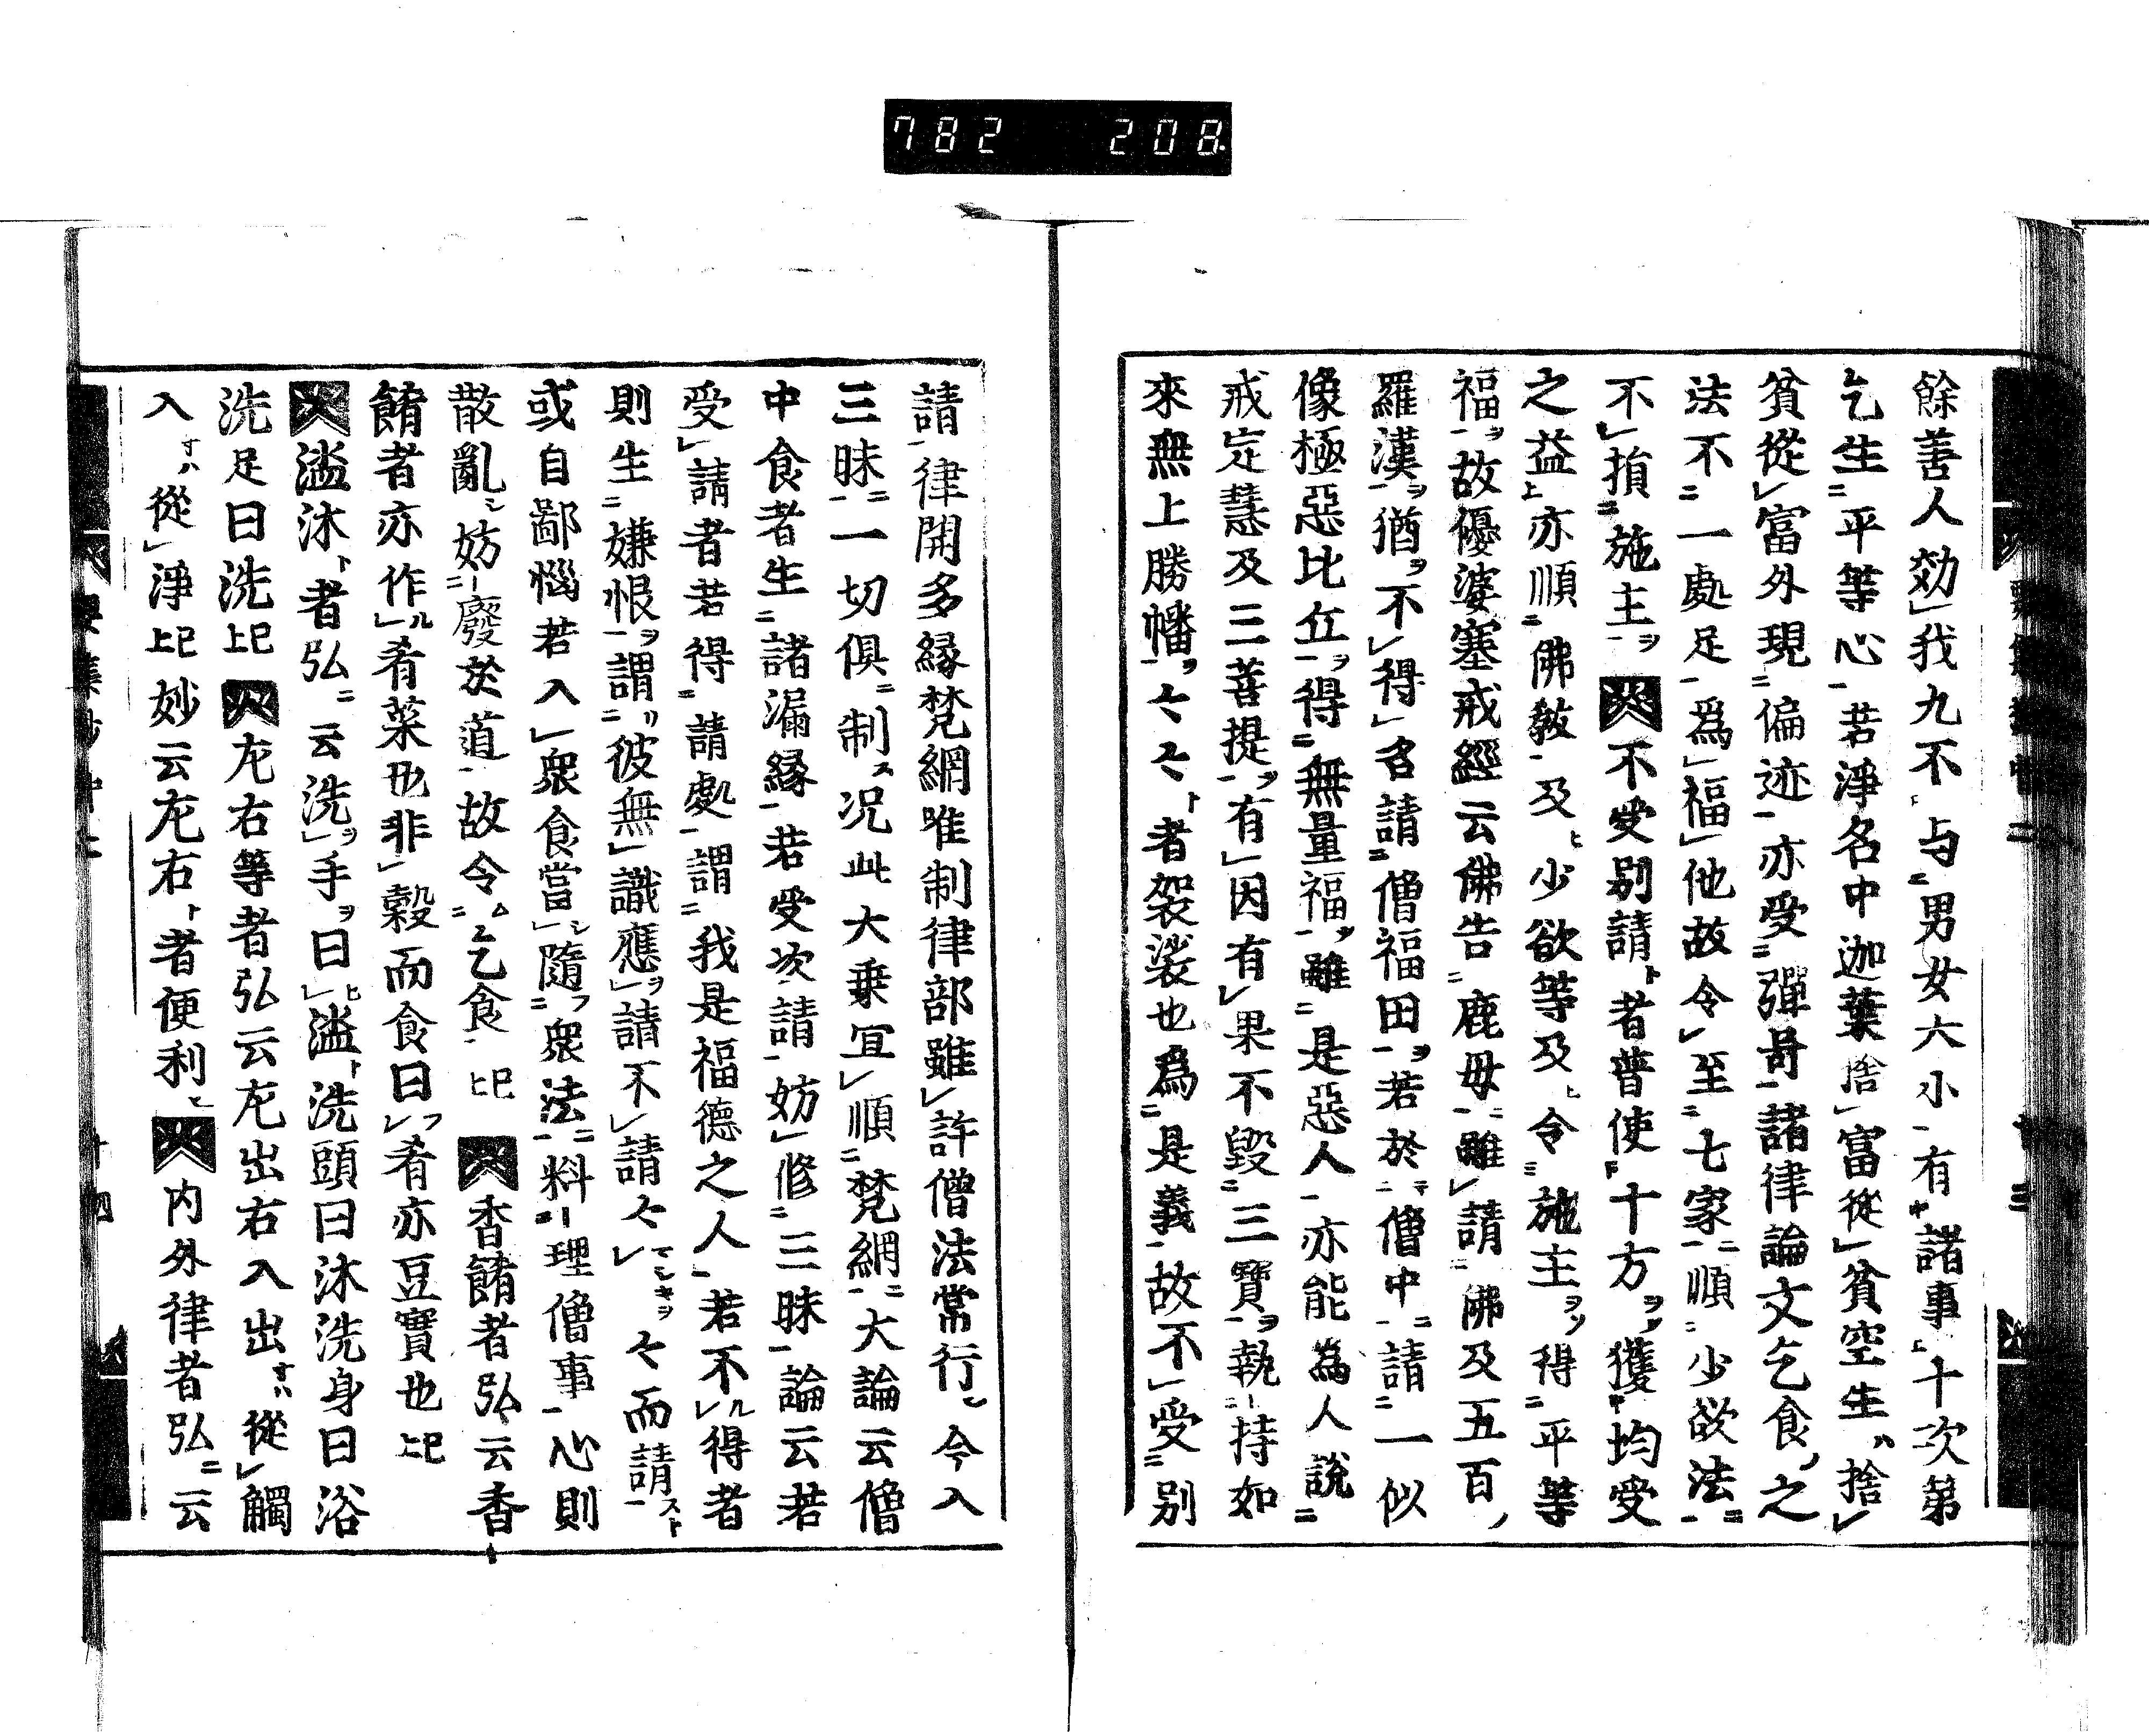 782 208
餘善人効我九不与男女大小有諸事十次第
乞生平等心若淨名中迦葉捨富從貧空生捨
貧從富外現偏迹亦受彈呵諸律論文乞食之
法不一處足為福他故令至七家順少欲法
不損施主不受別請者普使十方獲均受
之益亦順佛教及少欲等及令施主得平等
福故優婆塞戒經云佛告鹿母雖請佛及五百
羅漢猶不得名請僧福田若於僧中請一似
像極惡比丘得無量福雖是惡人亦能為人說
戒定慧及三菩提有因有果不毀三寶執持如
來無上勝幡々々者袈裟也為是義故不受別
請律開多緣梵網唯制律部雖許僧法常行今入
三昧一切俱制况此大乗宜順梵網大論云僧
中食者生諸漏緣若受次請妨修三昧論云若
受請者若得請處謂我是福德之人若不得者
則生嫌恨謂彼無識應請不請々々而請
或自鄙惱若入衆食當隨衆法料理僧事心則
散亂妨廢於道故令乞食 已上 香餚者弘云香
餚者亦作肴菜也非穀而食曰肴亦豆實也 已上
溢沐者弘云洗手曰溢洗頭曰沐洗身曰浴
洗足曰洗 已上 左右等者弘云左出右入出從觸
入從淨 已上 妙云左右者便利 内外律者弘云